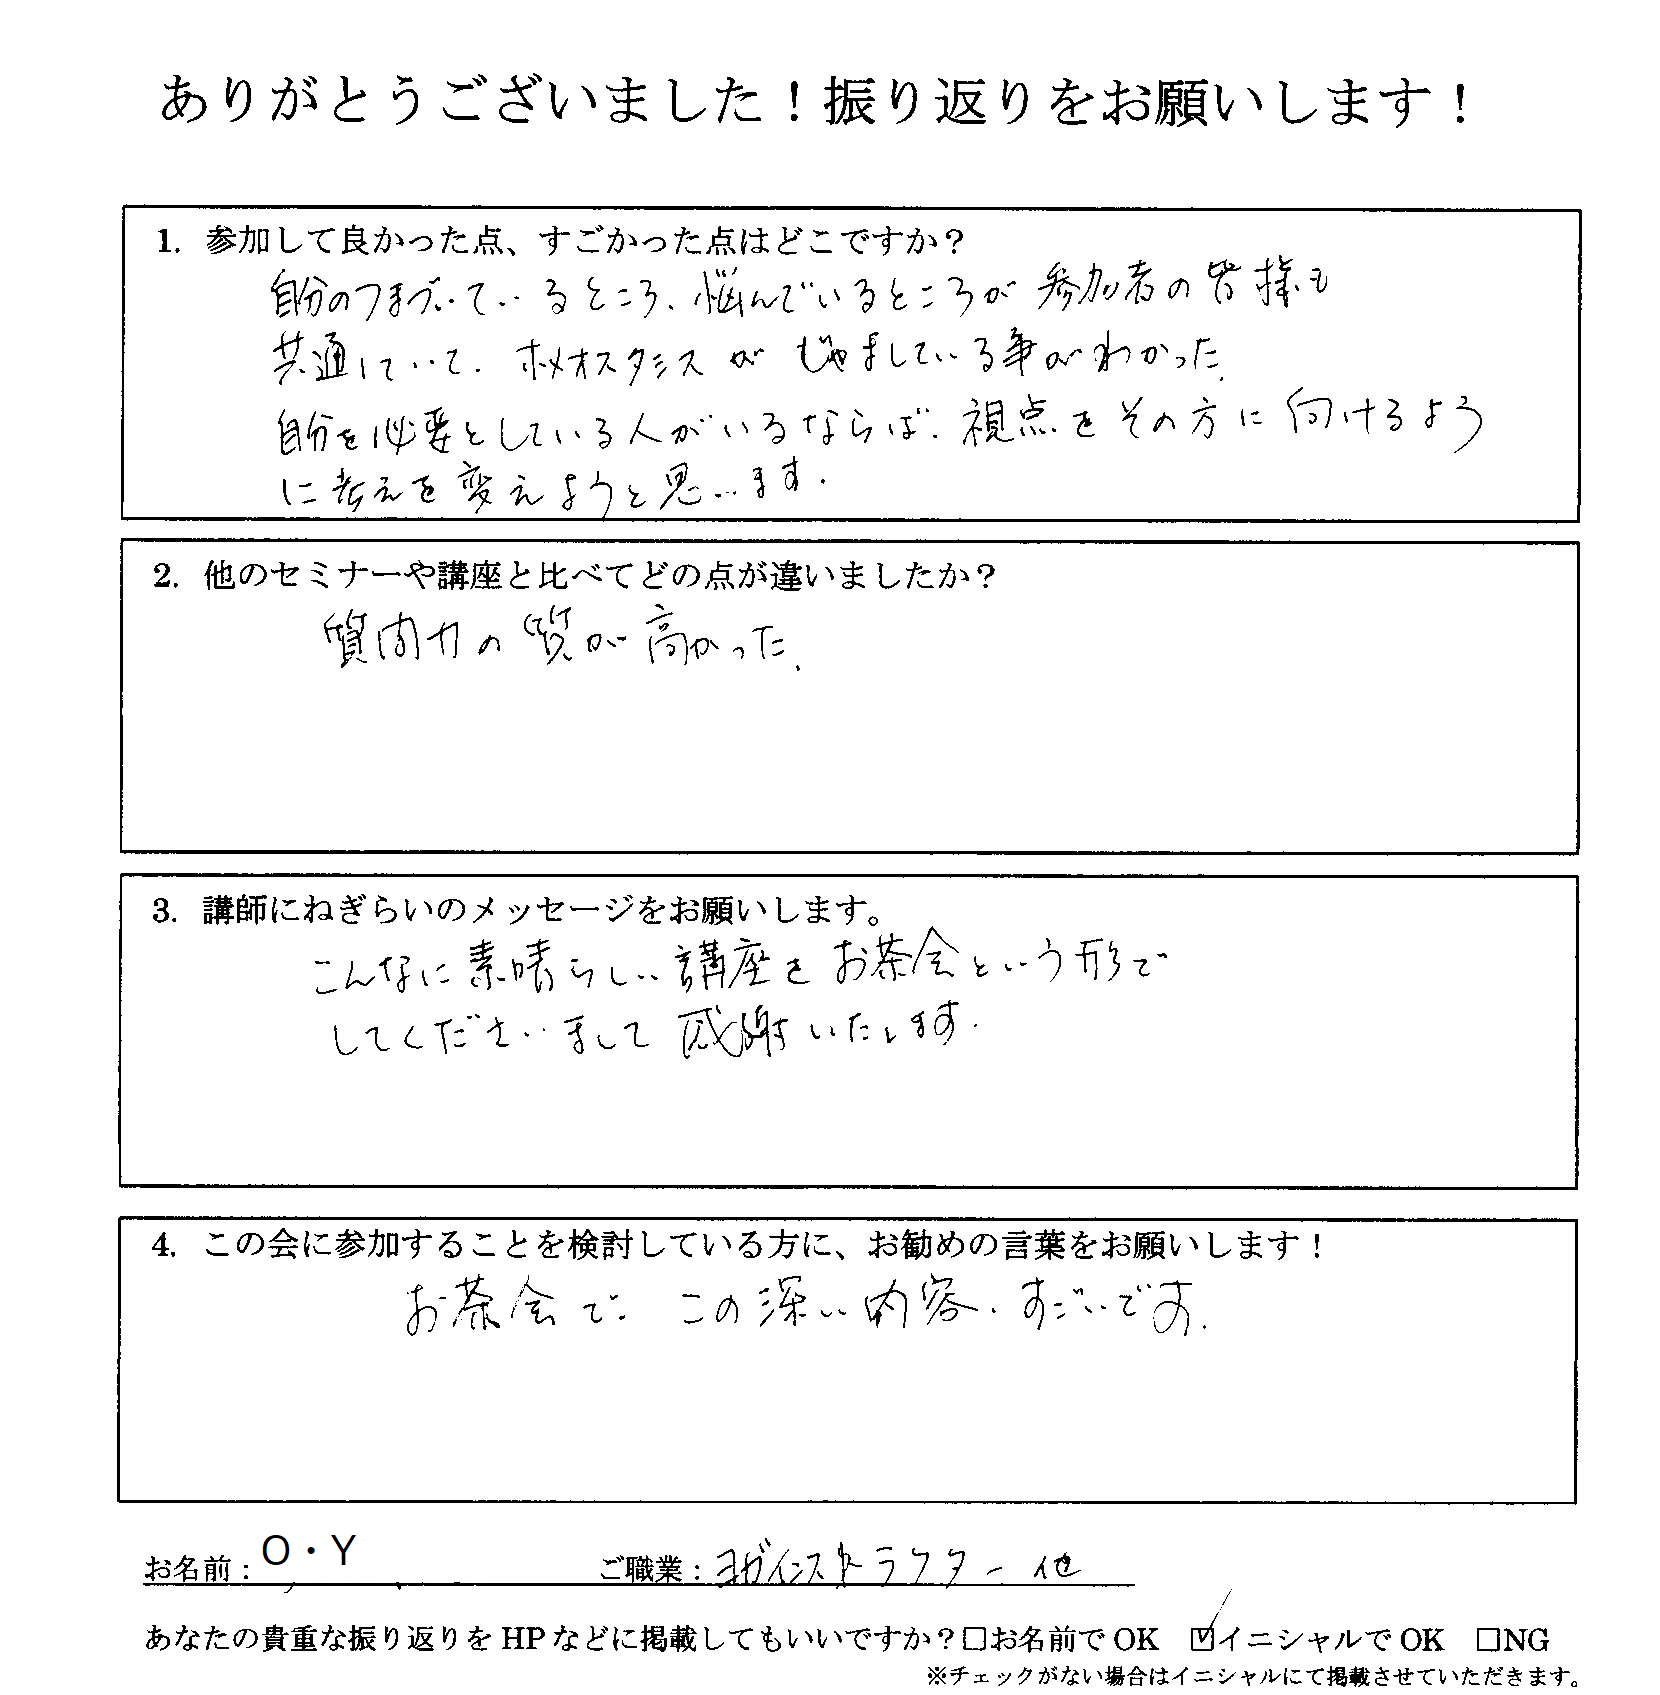 ありがとうございました！振り返りをお願いします！
1. 参加して良かった点、すごかった点はどこですか？
自分のつまづいているところ、悩んでいるところが参加者の皆様も
共通していて、ホメオスタシスがじゃましている事がわかった。
自分を必要としている人がいるならば、視点をその方に向けるよう
に考えを変えようと思います。
2. 他のセミナーや講座と比べてどの点が違いましたか？
質問力の質が高かった。
3. 講師にねぎらいのメッセージをお願いします。
こんなに素晴らしい講座をお茶会という形で
してくださいまして感謝いたします。
4. この会に参加することを検討している方に、お勧めの言葉をお願いします！
お茶会で、この深い内容、すごいです。
お名前：O・Y ご職業：ヨガインストラクター 他
あなたの貴重な振り返りを HP などに掲載してもいいですか？□お名前で OK ☑イニシャルで OK □NG
※チェックがない場合はイニシャルにて掲載させていただきます。